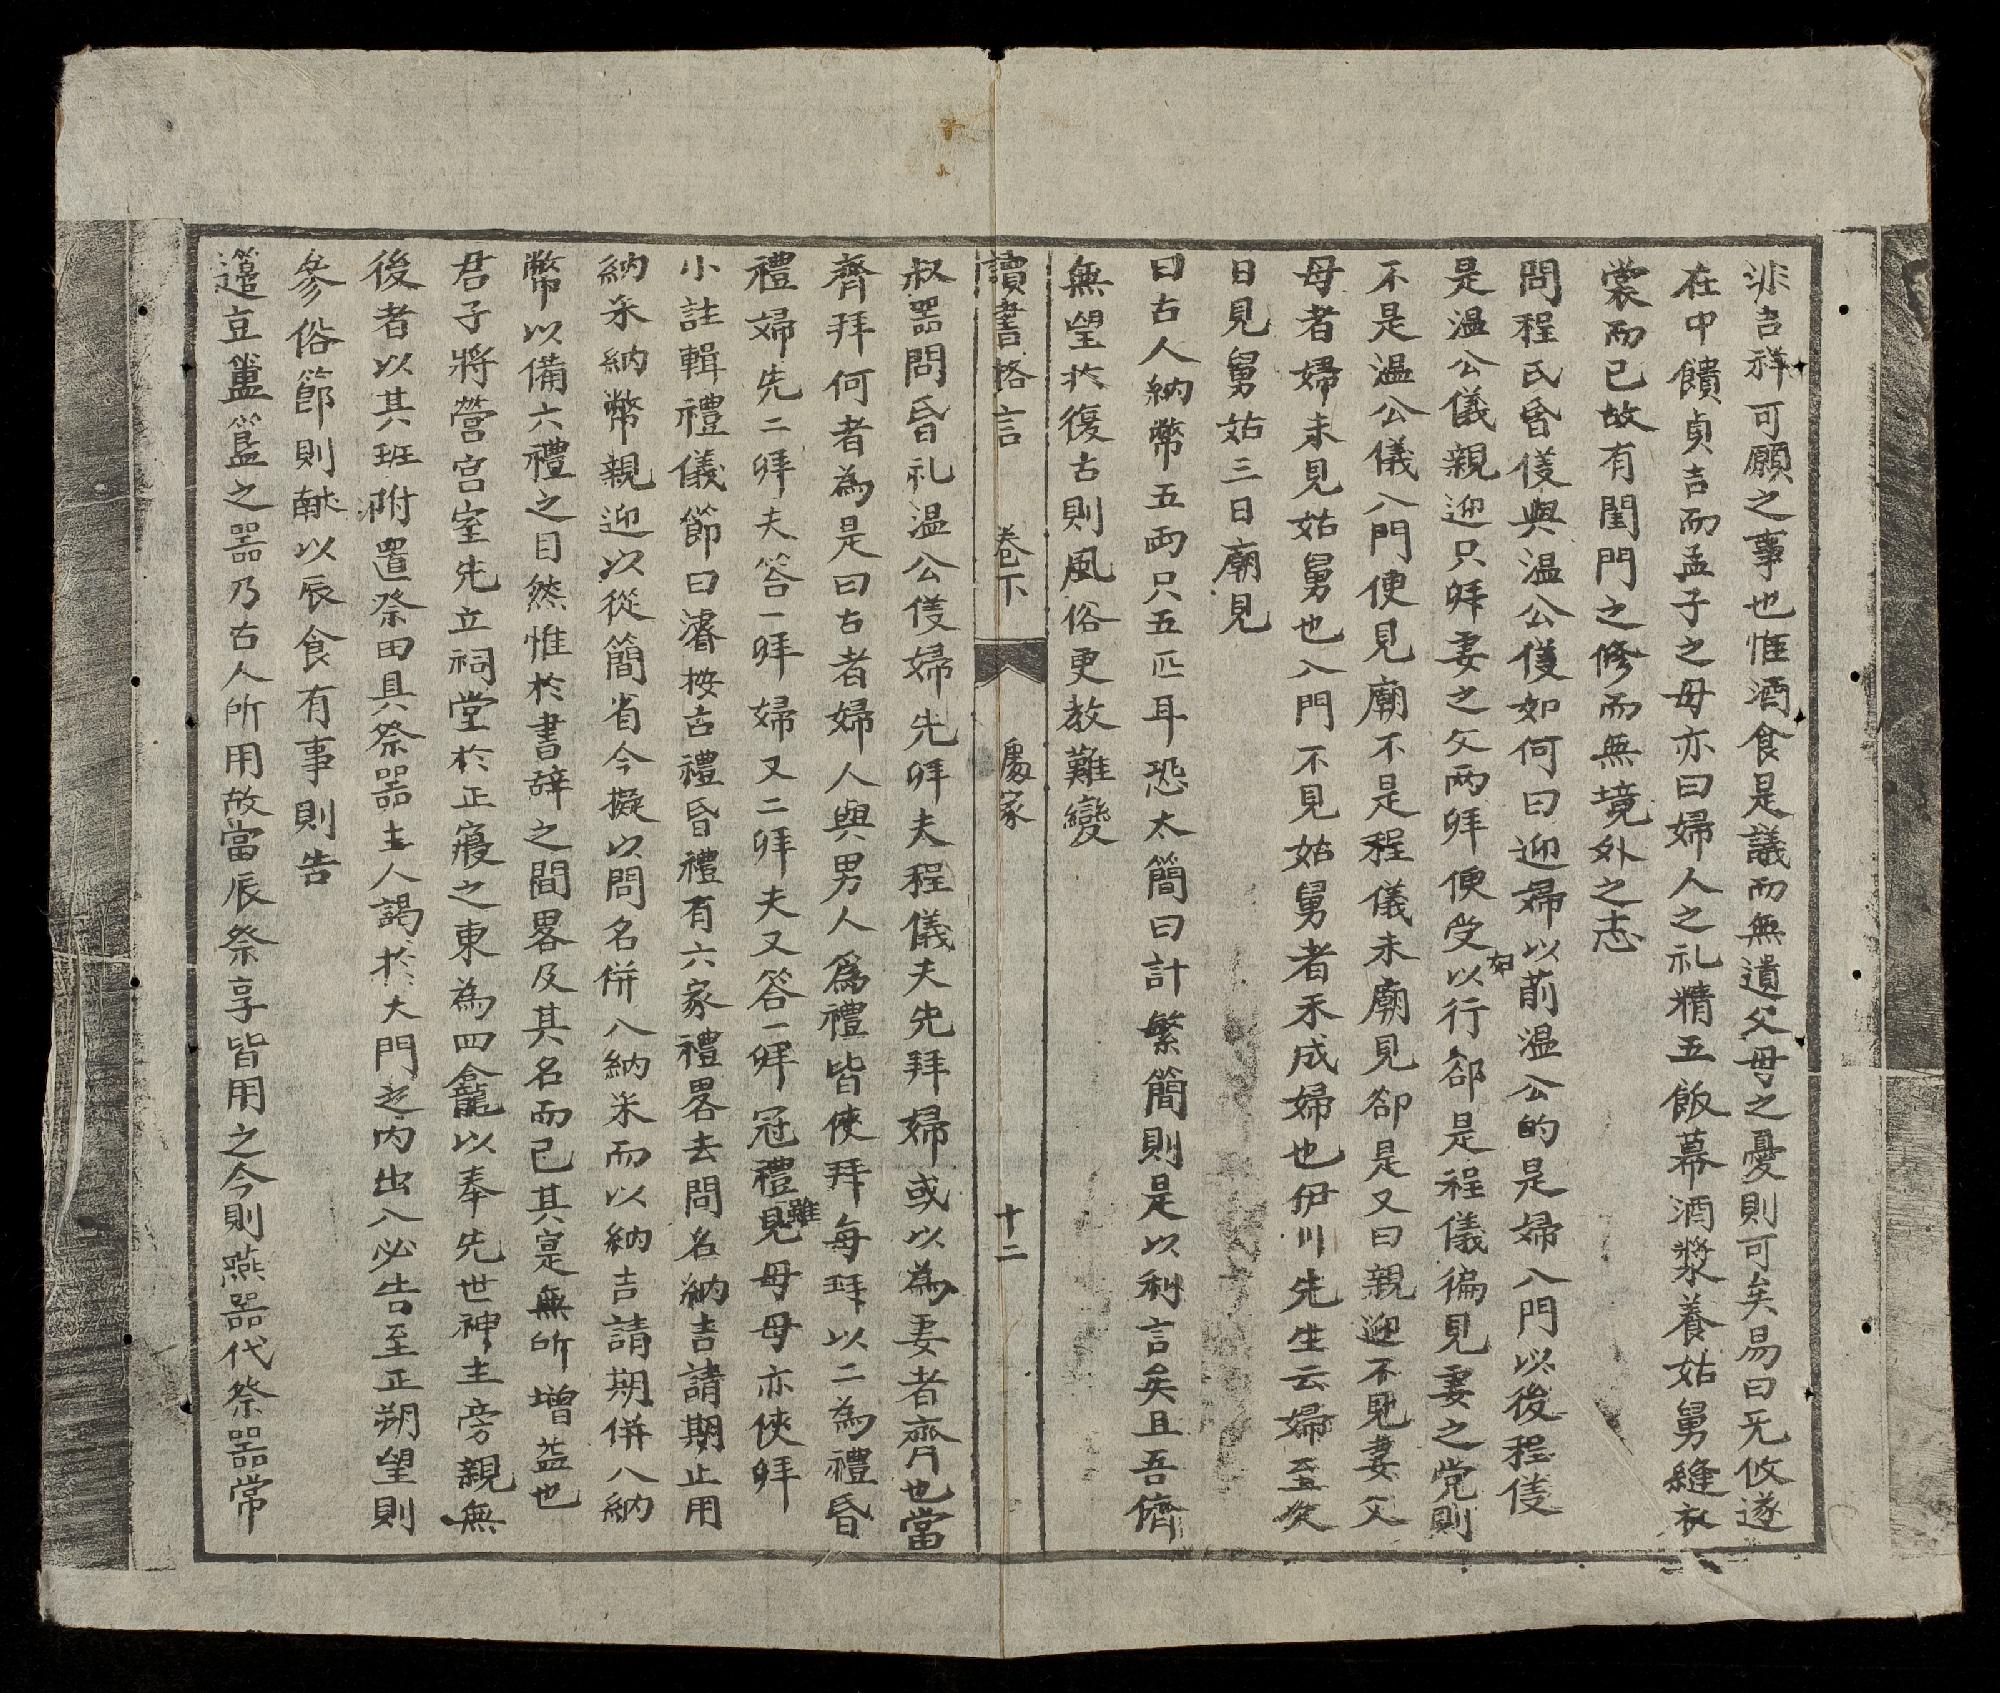 非吉祥可願之事也惟酒食是議而無遺父母之憂則可矣易曰无攸遂
在中饋貞吉而孟子之母亦曰婦人之礼精五飯幕酒漿養姑舅縫衣
裳而已故有閨門之修而無境外之志
問程氏昏儀與温公儀如何曰迎婦以前温公的是婦入門以後程儀
是温公儀親迎只拜妻之父两拜便受女以行郤是程儀徧見妻之党則
不是温公儀入門便見廟不是程儀未廟見郤是又曰親迎不見妻父
母者婦未見姑舅也入門不見姑舅者未成婦也伊川先生云婦至次
日見舅姑三日廟見
曰古人納幣五两只五匹耳恐太簡曰計繁簡則是以利言矣且吾儕
無望於復古則風俗更教難變
讀書格言 卷下 處家 十二
叔器問昏礼温公儀婦先拜夫程儀夫先拜婦或以為妻者齊也當
齊拜何者為是曰古者婦人與男人爲禮皆俠拜每拜以二為禮昏
禮婦先二拜夫答一拜婦又二拜夫又答一拜冠禮雖見母母亦俠拜
小註輯禮儀節曰濬按古禮昏禮有六家禮畧去問名納吉請期止用
納采納幣親迎以從簡省今擬以問名併入納采而以納吉請期併入納
幣以備六禮之目然惟於書辞之間畧及其名而已其寔無所增益也
君子將營宮室先立祠堂於正寢之東為四龕以奉先世神主旁親無
後者以其班附置祭田具祭器主人謁於大門之内出入必告至正朔望則
參俗節則献以辰食有事則告
籩豆簠簋之器乃古人所用故當辰祭享皆用之今則燕器代祭器常